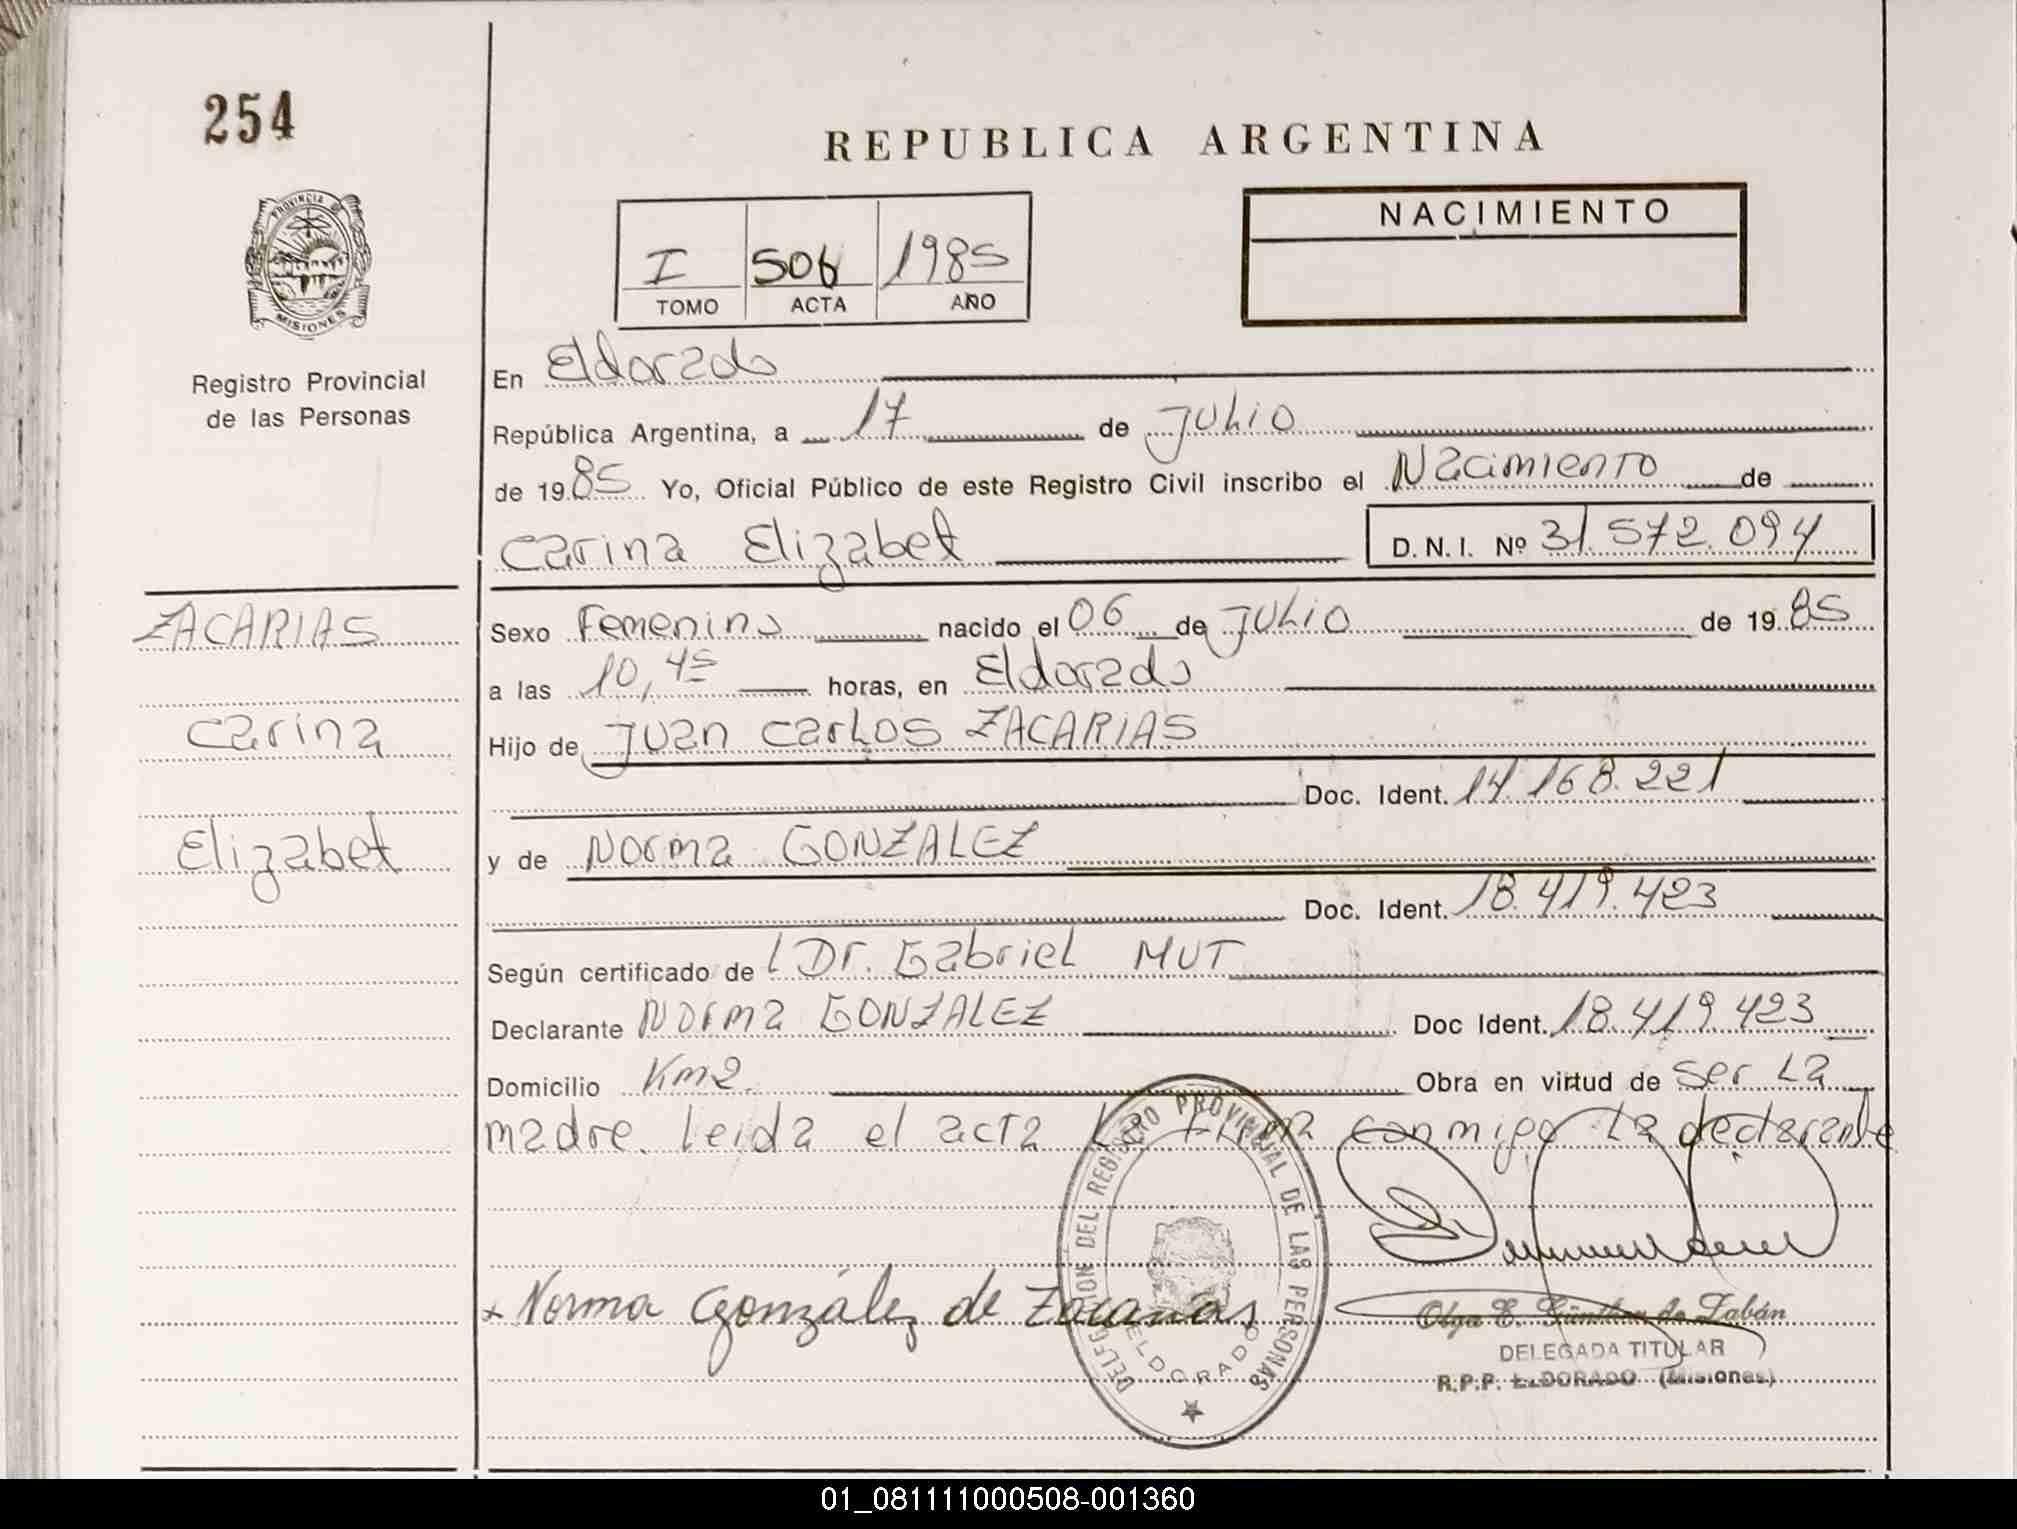 254
REPUBLICA ARGENTINA
PROVINCIA DE
MISIONES
Registro Provincial
de las Personas
I 506 1985
TOMO ACTA AÑO
NACIMIENTO
En Eldorado
República Argentina, a 17 de Julio
de 1985 Yo, Oficial Público de este Registro Civil inscribo el Nacimiento de
Carina Elizabet D.N.I. Nº 31.572.094
ZACARIAS
Carina
Elizabet
Sexo Femenino nacido el 06 de Julio de 1985
a las 10,45 horas, en Eldorado
Hijo de Juan Carlos ZACARIAS
Doc. Ident. 14.168.221
y de Norma GONZALEZ
Doc. Ident. 18.419.423
Según certificado de l Dr. Gabriel MUT
Declarante Norma GONZALEZ Doc Ident. 18.419.423
Domicilio Km2. Obra en virtud de ser la
madre. leida el acta la firma conmigo la declarante
DELEGACION DEL REGISTRO PROVINCIAL DE LAS PERSONAS
ELDORADO
x Norma González de Zacarias
Olga E. Günther de Zabán
DELEGADA TITULAR
R.P.P. ELDORADO (Misiones)
01_081111000508-001360